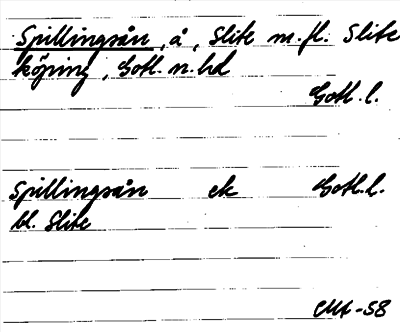 Spillingsån, å, Slite m.fl. Slite
köping, Gotl. n. hd
Gotl. l.
Spillingsån ek Gotl. l.
bl. Slite
CMt -58